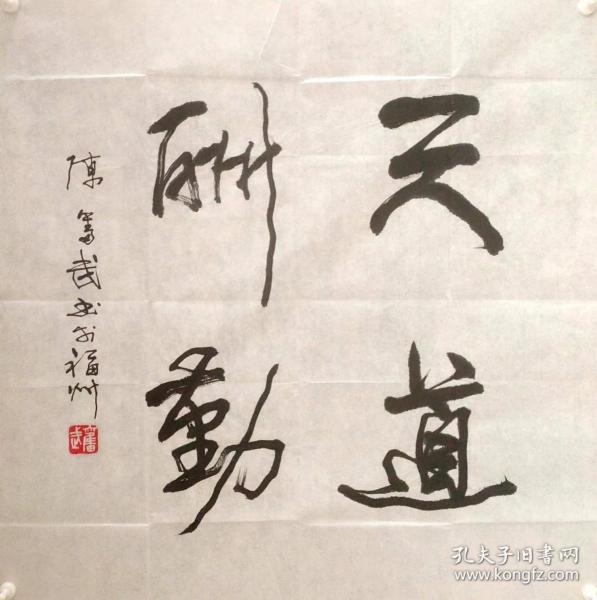 天道
酬勤
陈奮武书于福州
奮武
孔夫子旧书网
www.kongfz.com